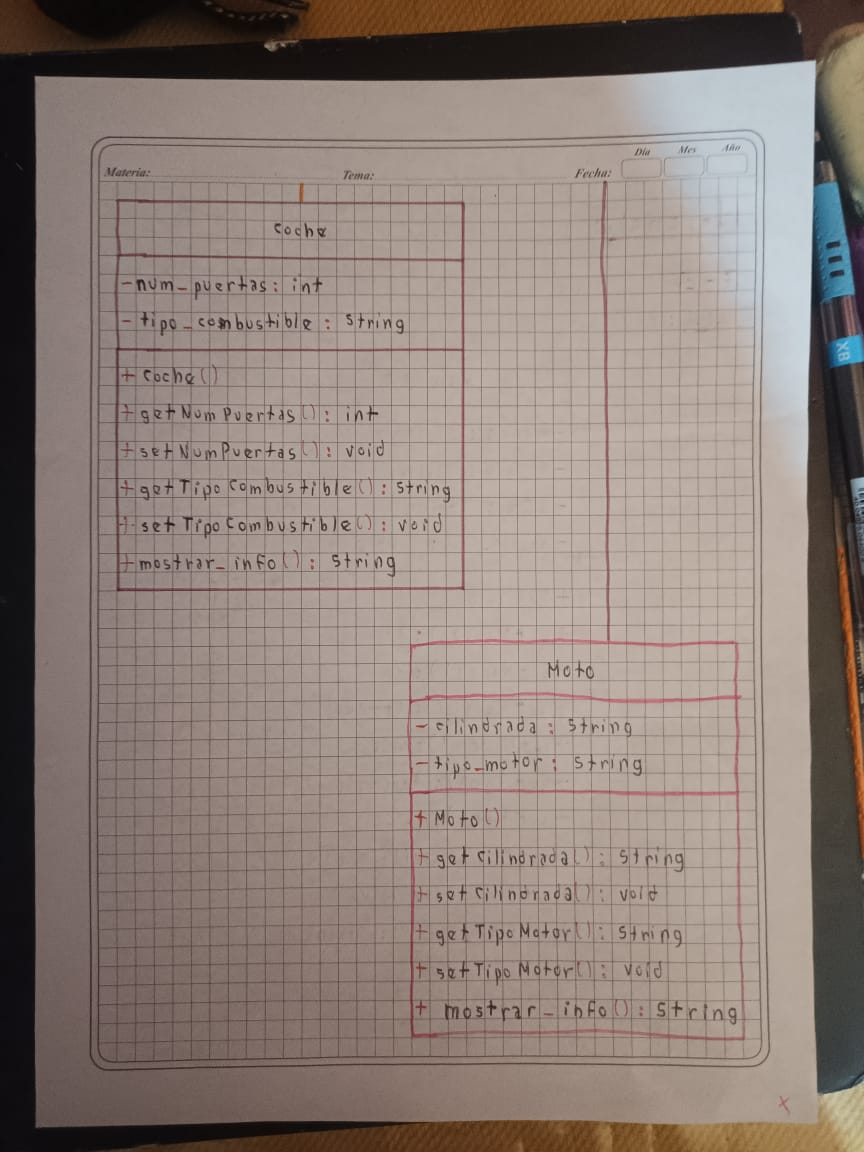 Día Mes Año
Materia: Tema: Fecha:
coche
- num_puertas: int
- tipo_combustible: string
+ coche()
+ getNumPuertas(): int
+ setNumPuertas(): void
+ getTipoCombustible(): string
+ setTipoCombustible(): void
+ mostrar_info(): string
Moto
- cilindrada: string
- tipo_motor: string
+ Moto()
+ getCilindrada(): string
+ setCilindrada(): void
+ getTipoMotor(): string
+ setTipoMotor(): void
+ mostrar_info(): string
x
XB